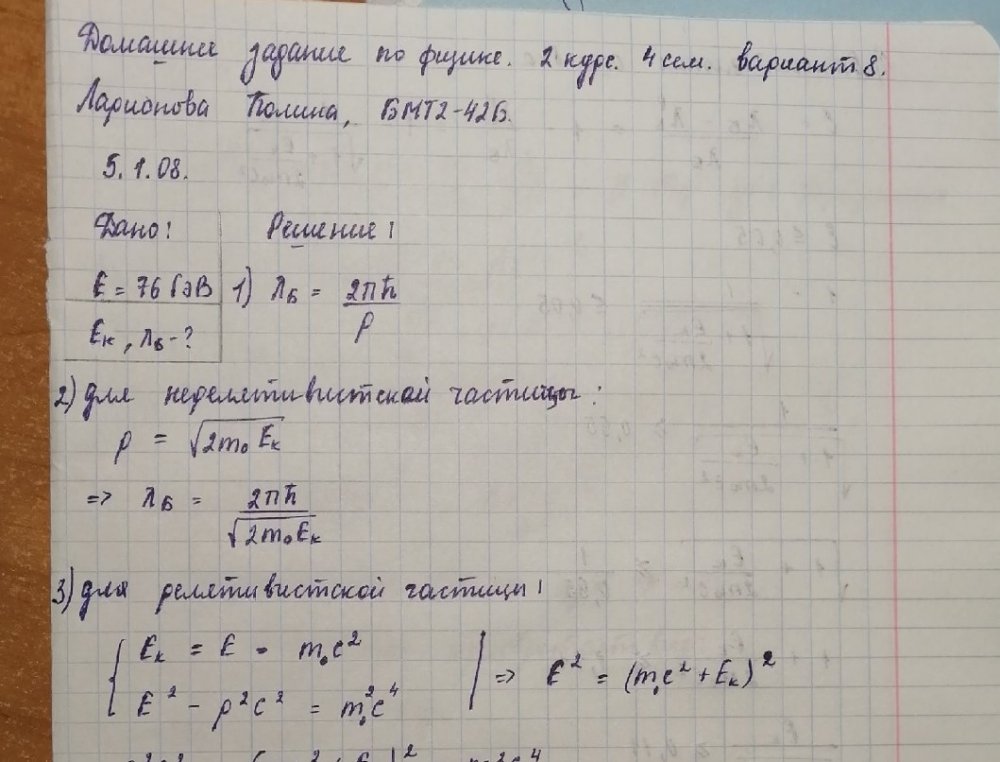 Домашнее задание по физике. 2 курс. 4 сем. вариант 8.
Ларионова Полина, БМТ2-42Б.
5.1.08.
Дано: Решение:
E = 76 ГэВ 1) λБ = 2πħ / p
Eк, λБ - ?
2) для нерелятивистской частицы:
p = √(2m₀Eк)
=> λБ = 2πħ / √(2m₀Eк)
3) для релятивистской частицы:
{ Eк = E - m₀c²
E² - p²c² = m₀²c⁴ | => E² = (m₀c² + Eк)²